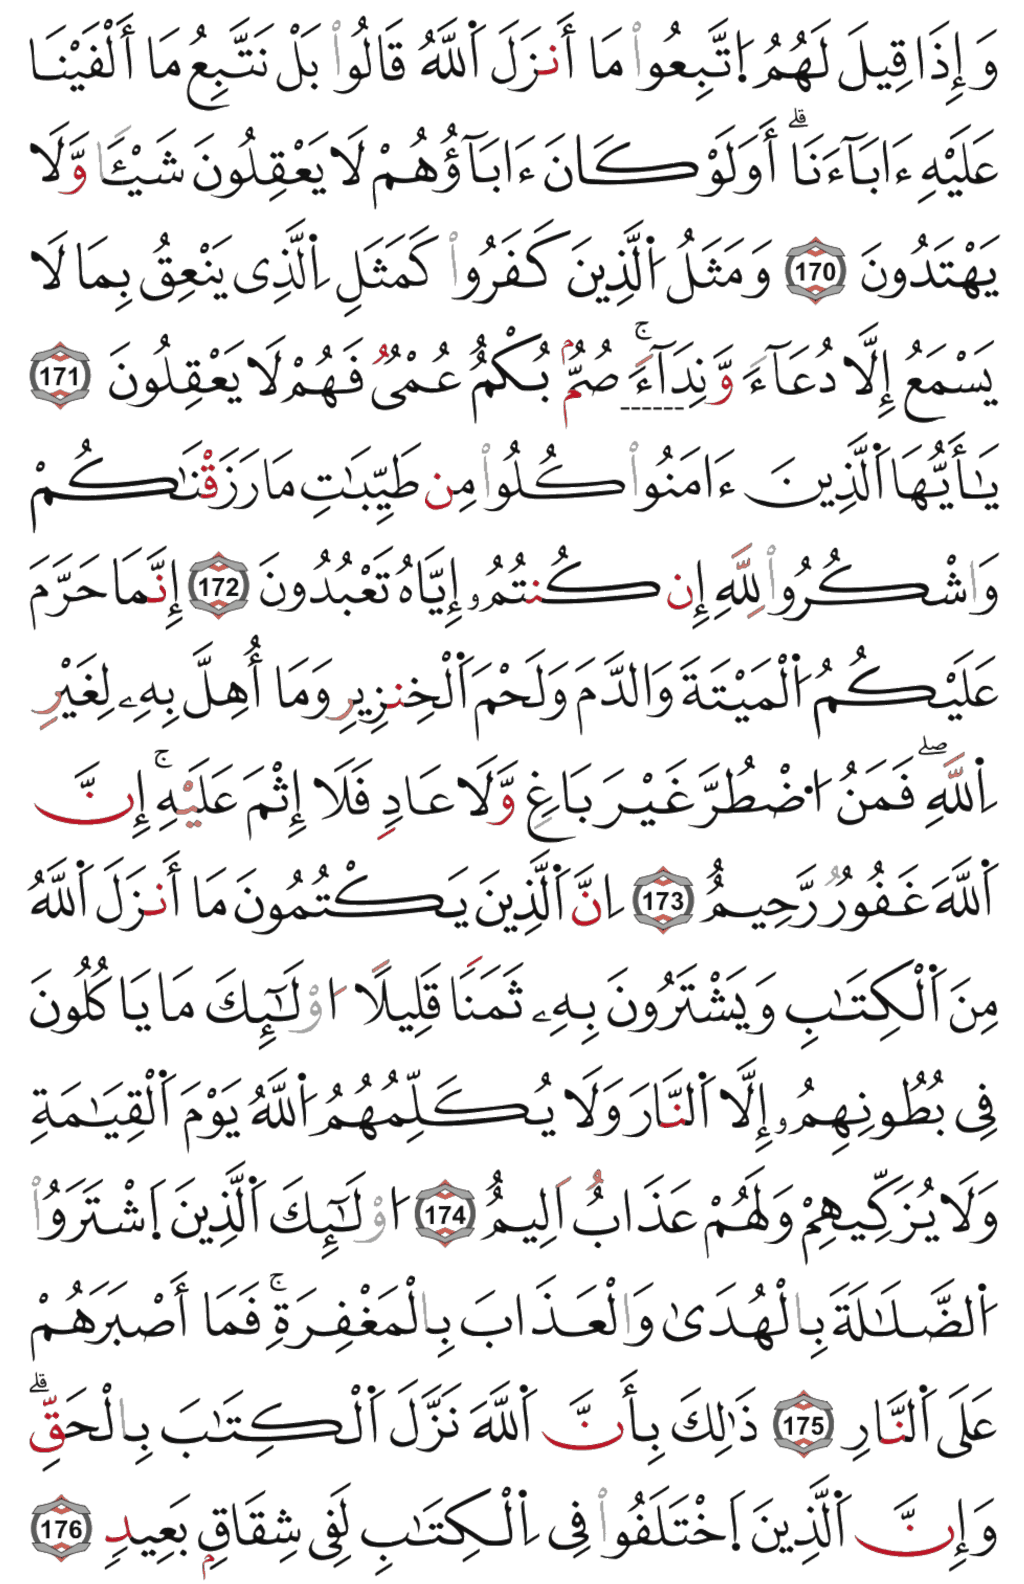 وَإِذَا قِيلَ لَهُمُ اُ۪تَّبِعُواْ مَا أَنزَلَ اَ۬للَّهُ قَالُواْ بَلْ نَتَّبِعُ مَا أَلْفَيْنَا
عَلَيْهِ ءَابَآءَنَاۗ أَوَلَوْ كَانَ ءَابَآؤُهُمْ لَا يَعْقِلُونَ شَيْـًٔا وَّلَا
يَهْتَدُونَ 170 وَمَثَلُ اُ۬لَّذِينَ كَفَرُواْ كَمَثَلِ اِ۬لَّذِى يَنْعِقُ بِمَا لَا
يَسْمَعُ إِلَّا دُعَآءً وَّنِدَآءًۚ صُمُّۢ بُكْمٌ عُمْىٌ فَهُمْ لَا يَعْقِلُونَ 171
يَـٰٓأَيُّهَا اَ۬لَّذِينَ ءَامَنُواْ كُلُواْ مِن طَيِّبَـٰتِ مَا رَزَقْنَـٰكُمْ
وَاشْكُرُواْ لِلَّهِ إِن كُنتُمُۥ إِيَّاهُ تَعْبُدُونَ 172 إِنَّمَا حَرَّمَ
عَلَيْكُمُ اُ۬لْمَيْتَةَ وَالدَّمَ وَلَحْمَ اَ۬لْخِنزِيرِ وَمَا أُهِلَّ بِهِۦ لِغَيْرِ
اِ۬للَّهِۖ فَمَنُ اُ۟ضْطُرَّ غَيْرَ بَاغٍ وَّلَا عَادٍ فَلَا إِثْمَ عَلَيْهِۚ إِنَّ
اَ۬للَّهَ غَفُورٌ رَّحِيمٌ 173 اِنَّ اَ۬لَّذِينَ يَكْتُمُونَ مَا أَنزَلَ اَ۬للَّهُ
مِنَ اَ۬لْكِتَـٰبِ وَيَشْتَرُونَ بِهِۦ ثَمَنًا قَلِيلًا اَوْلَـٰٓئِكَ مَا يَاكُلُونَ
فِى بُطُونِهِمُۥ إِلَّا اَ۬لنَّارَ وَلَا يُكَلِّمُهُمُ اُ۬للَّهُ يَوْمَ اَ۬لْقِيَـٰمَةِ
وَلَا يُزَكِّيهِمْ وَلَهُمْ عَذَابٌ اَلِيمٌ 174 اَوْلَـٰٓئِكَ اَ۬لَّذِينَ اَ۪شْتَرَوُاْ
اُ۬لضَّلَـٰلَةَ بِالْهُدَىٰ وَالْعَذَابَ بِالْمَغْفِرَةِۚ فَمَا أَصْبَرَهُمْ
عَلَى اَ۬لنَّارِ 175 ذَٰلِكَ بِأَنَّ اَ۬للَّهَ نَزَّلَ اَ۬لْكِتَـٰبَ بِالْحَقِّۗ
وَإِنَّ اَ۬لَّذِينَ اَ۪خْتَلَفُواْ فِى اِ۬لْكِتَـٰبِ لَفِى شِقَاقِۭ بَعِيدٍ 176